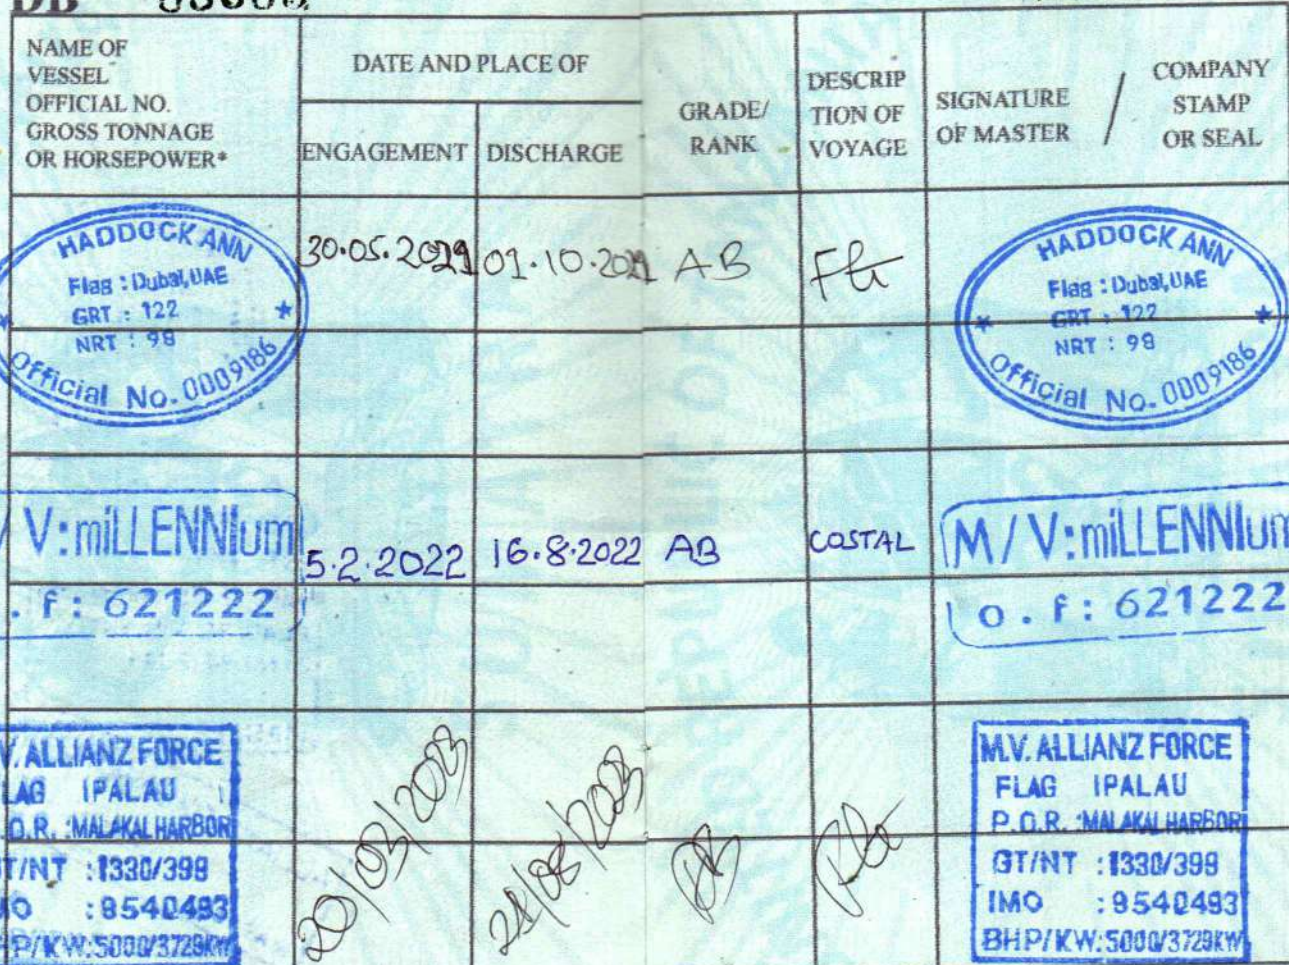 DB
NAME OF
VESSEL
OFFICIAL NO.
GROSS TONNAGE
OR HORSEPOWER*
DATE AND PLACE OF
ENGAGEMENT
DISCHARGE
GRADE/
RANK
DESCRIP
TION OF
VOYAGE
SIGNATURE
OF MASTER
/
COMPANY
STAMP
OR SEAL
HADDOCK ANN
Flag : Dubai, UAE
GRT : 122
NRT : 98
Official No. 0009186
30.05.2021
01.10.2021
AB
HADDOCK ANN
Flag : Dubai, UAE
GRT : 122
NRT : 98
Official No. 0009186
/ V:miLLENNIum
. f: 621222
5.2.2022
16.8.2022
AB
COSTAL
M/V:miLLENNIum
o.f: 621222
V. ALLIANZ FORCE
LAG IPALAU
.O.R. :MALAKAL HARBOR
T/NT :1330/399
MO :9540493
HP/KW:5000/3729KW
20/03/2023
AB
M.V. ALLIANZ FORCE
FLAG IPALAU
P.O.R. :MALAKAL HARBOR
GT/NT :1330/399
IMO :9540493
BHP/KW:5000/3729KW